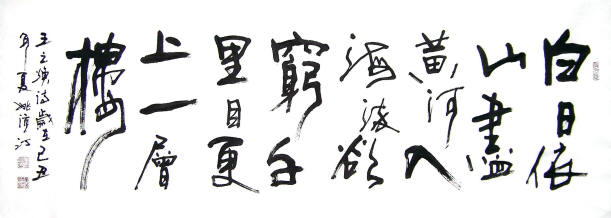 白日依
山盡
黃河入
海流欲
窮千
里目更
上一層
樓
王之煥诗歲在己丑
年夏姚